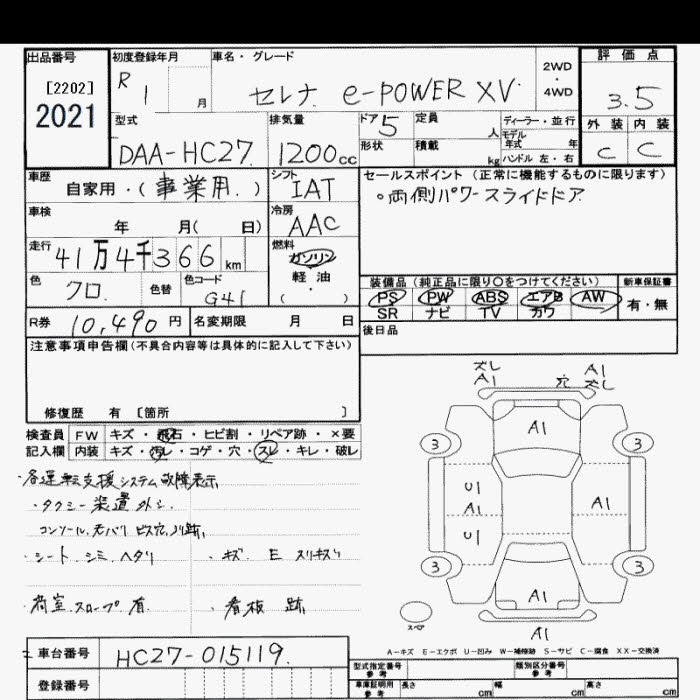 出品番号 初度登録年月 車名・グレード 評価点
[2202] R 1 月 セレナ e-POWER XV 2WD・4WD 3.5
2021
型式 排気量 ドア 5 定員 人 ディーラー・並行 外装 内装
DAA-HC27 1200cc 形状 積載 kg モデル年式 年 C C
ハンドル 左・右
車歴 自家用・(事業用.) シフト IAT セールスポイント (正常に機能するものに限ります)
。両側パワースライドドア
車検 年 月( 日) 冷房 AAC
走行 41万4千366km 燃料 ガソリン・軽油・( )
色 クロ. 色替 色コード G41
装備品(純正品に限り○をつけてください) 新車保証書
PS PW ABS エアB AW 有・無
SR ナビ TV カワ
R券 10,490円 名変期限 月 日 後日品
注意事項申告欄(不具合内容等は具体的に記入して下さい)
修復歴 有 [箇所 ]
検査員 FW キズ・飛石・ヒビ割・リペア跡・×要
記入欄 内装 キズ・汚レ・コゲ・穴・スレ・キレ・破レ
・各運転支援システム故障表示
・タクシー装置外シ
コンソール、ビス穴、ノリ跡
・シート シミ ヘタリ ・キズ E スリキズ
・荷室スロープ有 ・看板跡
ズレ A1
A1 穴 ズレ
A1
3 3
U1
A1 A1
U1
3 3
A1
スペア
A1
A-キズ E-エクボ U-凹み W-補修跡 S-サビ C-腐食 XX-交換済
車台番号 HC27-015119.
登録番号
型式指定番号 参考 類別区分番号 参考
車庫証明用 参考 長さ cm 幅 cm 高さ cm